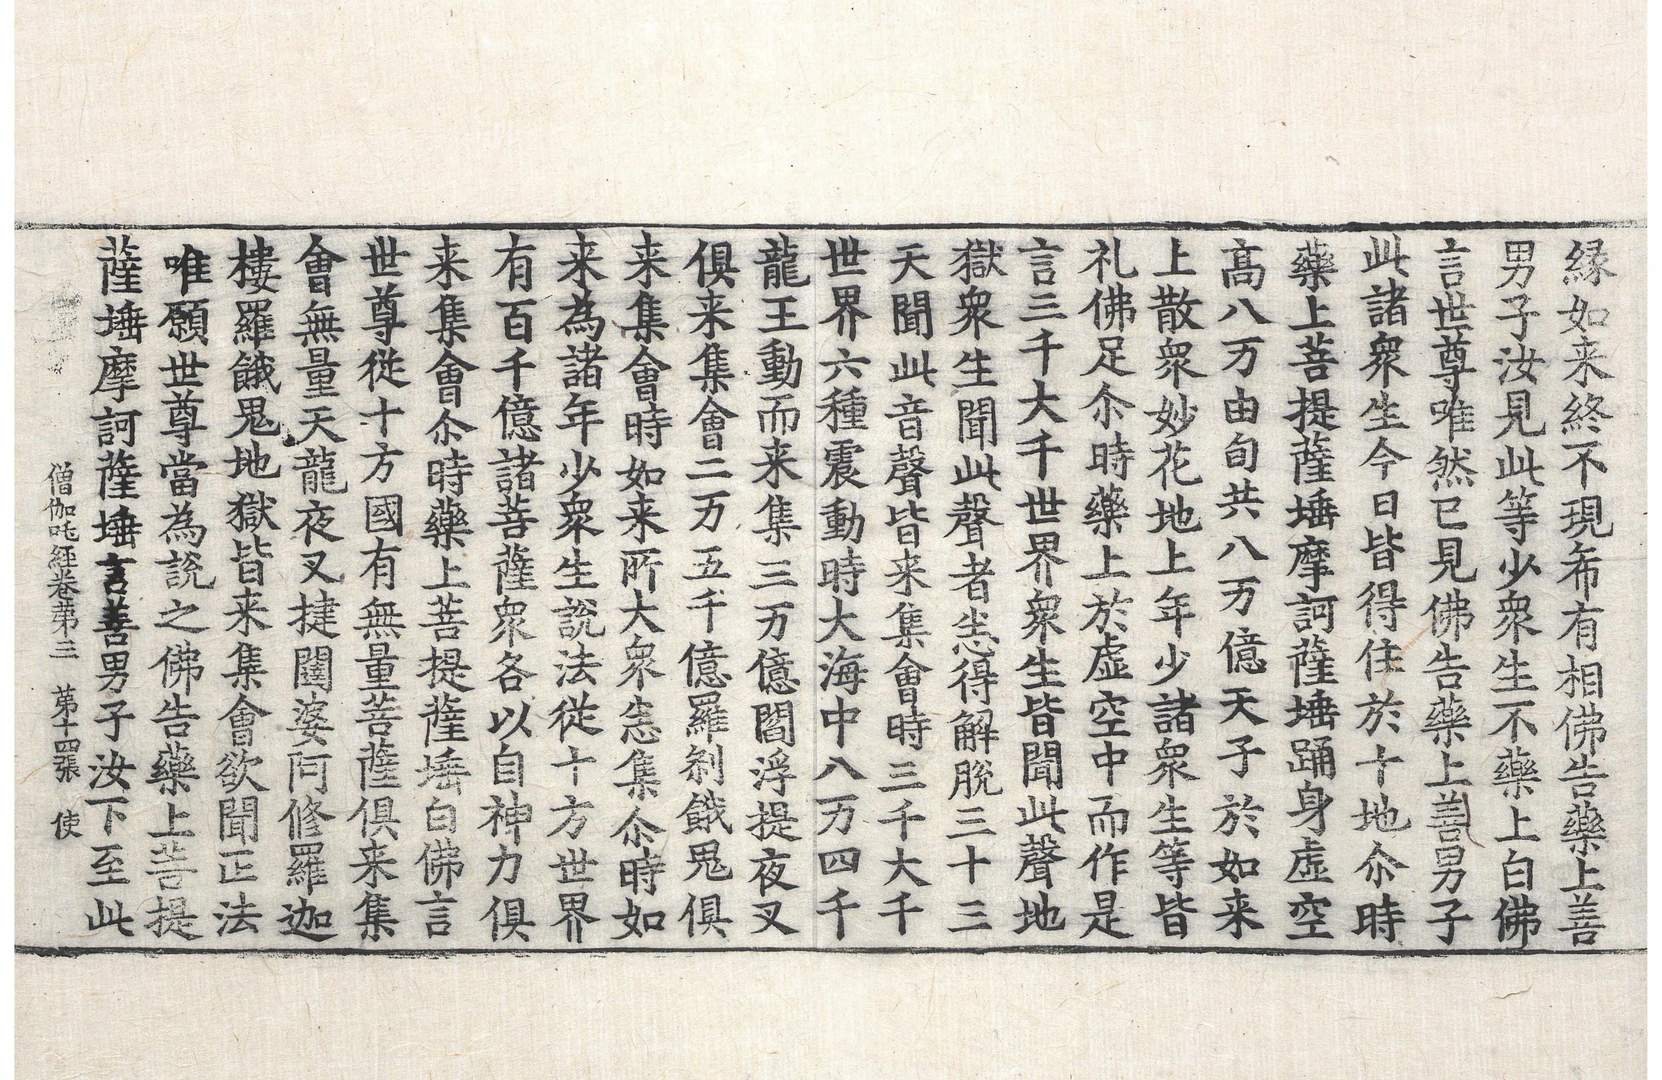 縁如来終不現希有相佛告藥上善
男子汝見此等少衆生不藥上白佛
言世尊唯然已見佛告藥上善男子
此諸衆生今日皆得住於十地尒時
藥上菩提薩埵摩訶薩埵踊身虚空
髙八万由旬共八万億天子於如来
上散衆妙花地上年少諸衆生等皆
礼佛足尒時藥上於虚空中而作是
言三千大千世界衆生皆聞此聲地
獄衆生聞此聲者悉得解脫三十三
天聞此音聲皆来集會時三千大千
世界六種震動時大海中八万四千
龍王動而来集三万億閻浮提夜叉
俱来集會二万五千億羅刹餓鬼俱
来集會時如来所大衆悉集尒時如
来為諸年少衆生說法従十方世界
有百千億諸菩薩衆各以自神力俱
来集會尒時藥上菩提薩埵白佛言
世尊従十方國有無量菩薩俱来集
會無量天龍夜叉揵闥婆阿修羅迦
樓羅餓鬼地獄皆来集會欲聞正法
唯願世尊當為說之佛告藥上菩提
薩埵摩訶薩埵言善男子汝下至此
僧伽吒經卷第三 第十四張 使